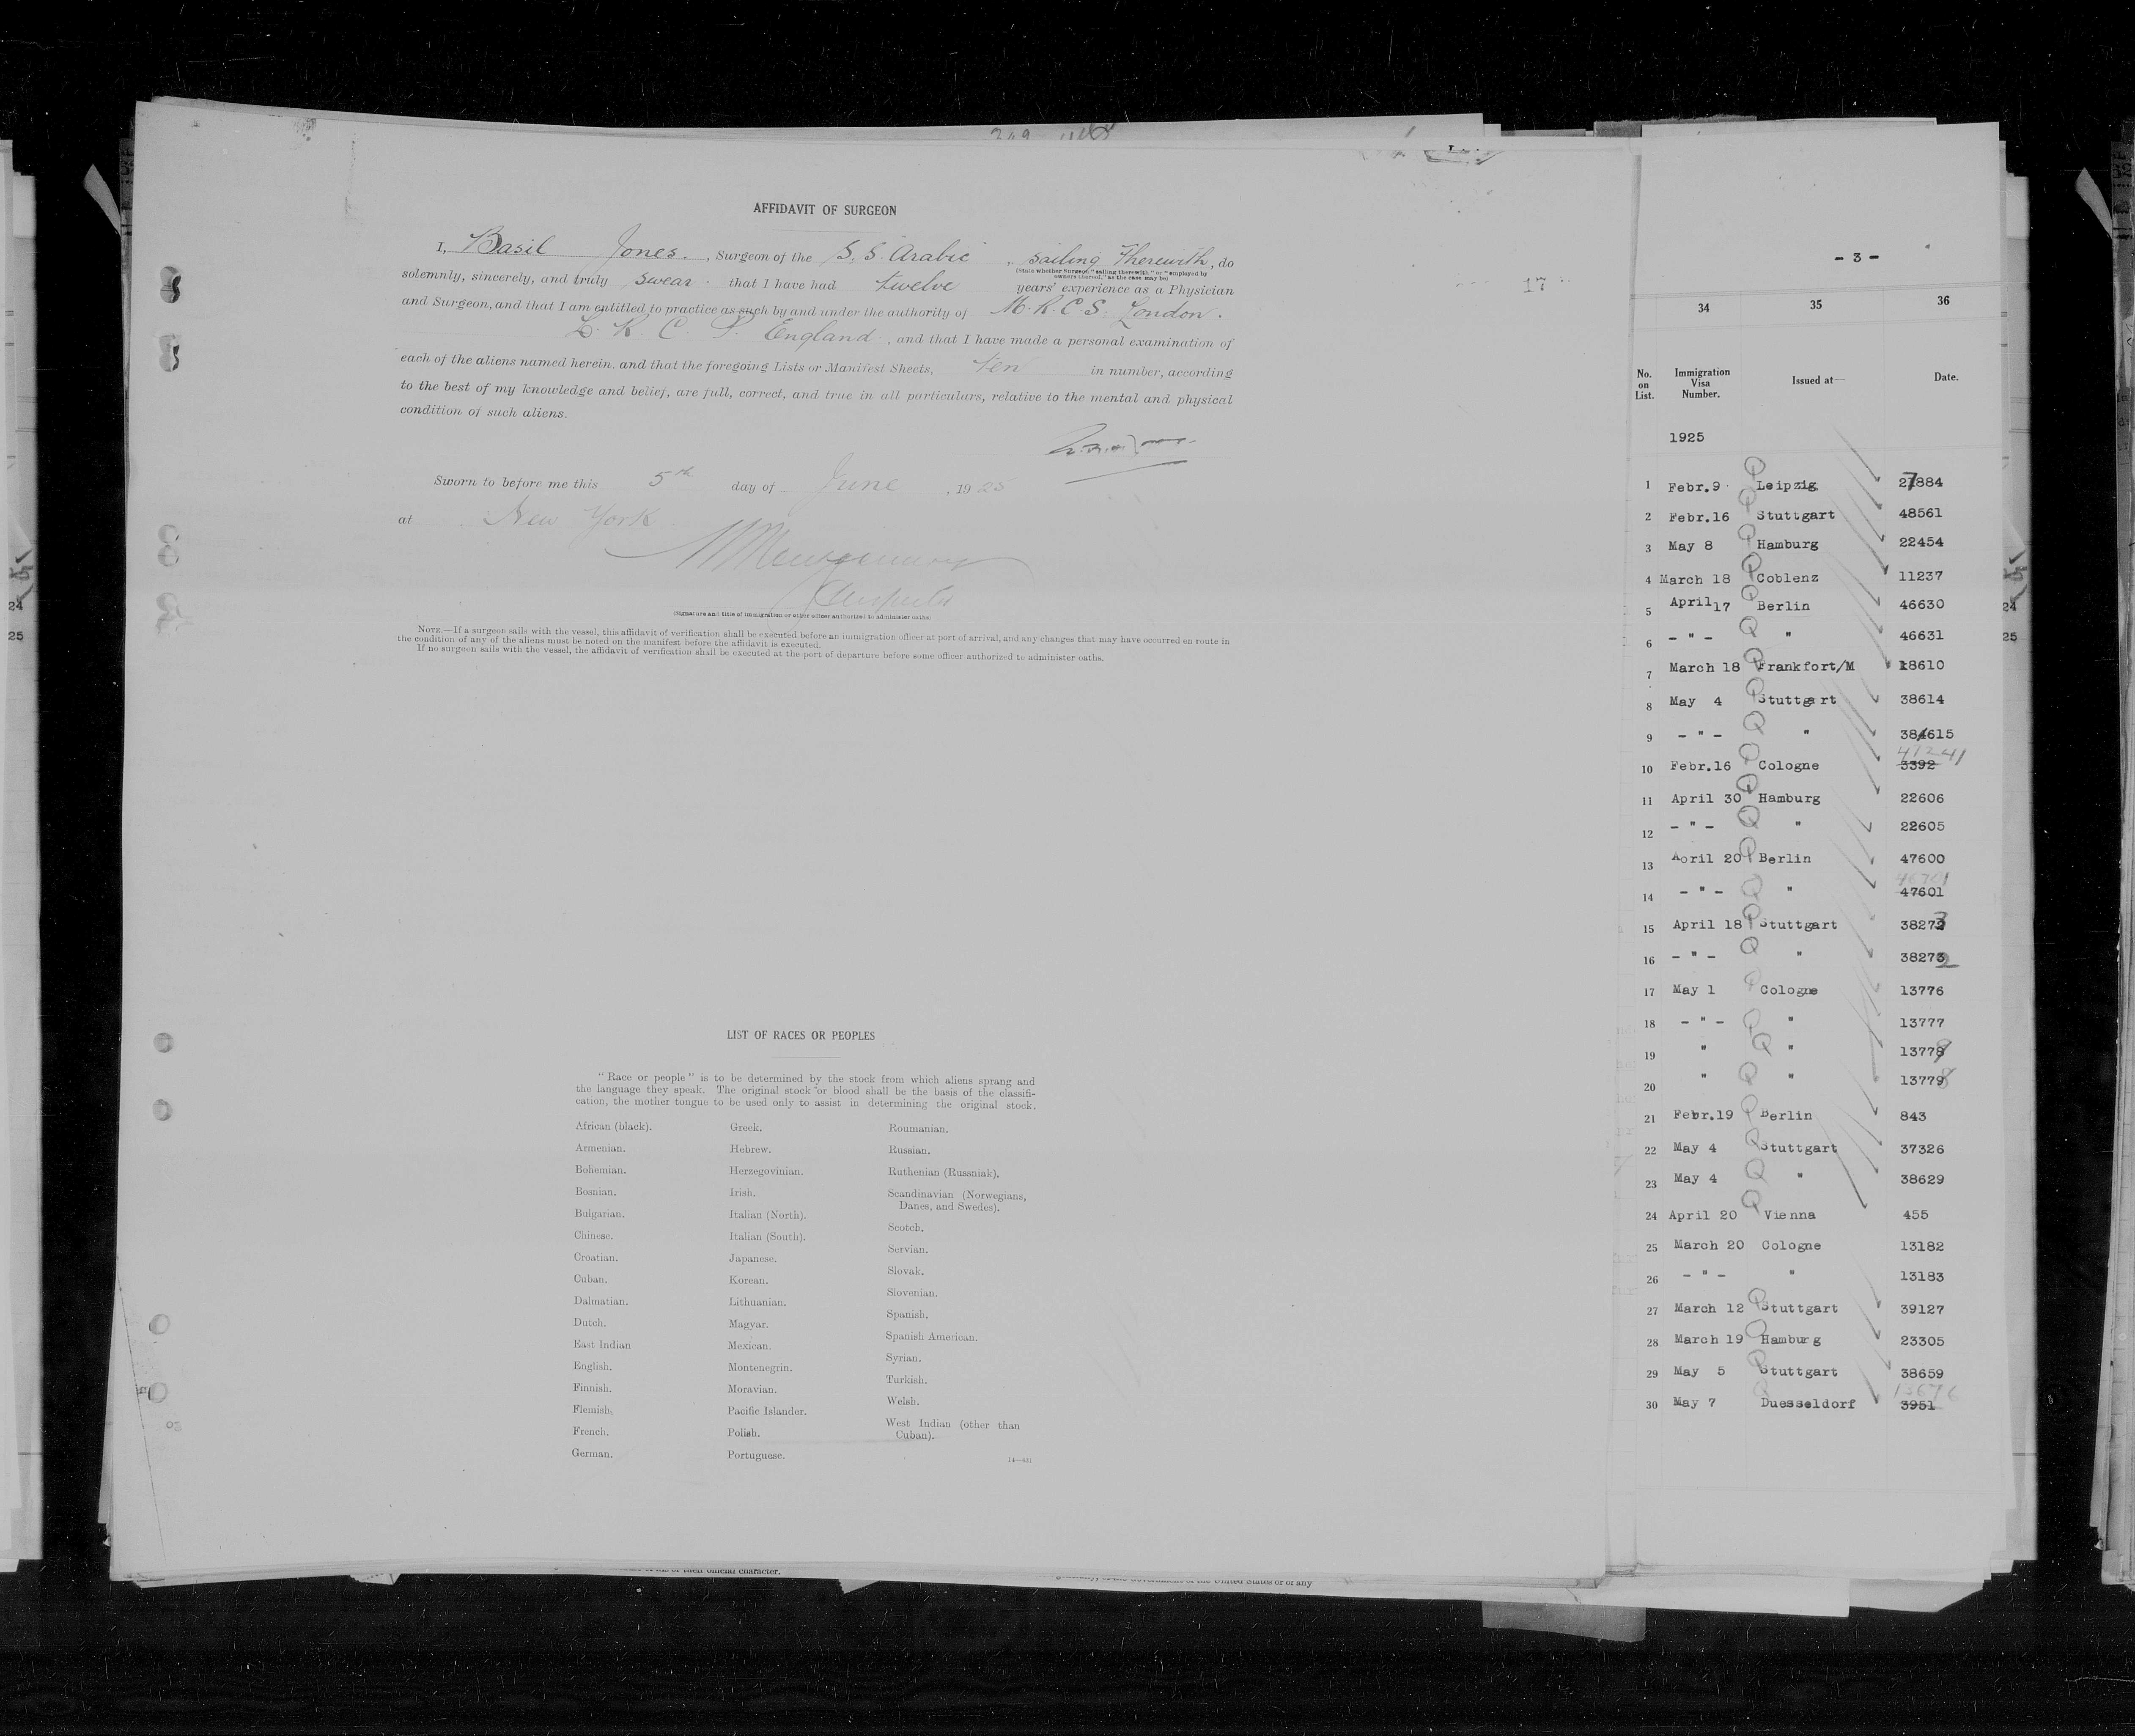 AFFIDAVIT OF SURGEON
I, Basil Jones. , Surgeon of the S. S. Arabic , sailing Therewith, do
(State whether Surgeon "sailing therewith," or "employed by owners thereof," as the case may be)
solemnly, sincerely, and truly swear that I have had twelve years' experience as a Physician
and Surgeon, and that I am entitled to practice as such by and under the authority of M. R. C. S. London.
L. R. C. P. England , and that I have made a personal examination of
each of the aliens named herein, and that the foregoing Lists or Manifest Sheets, ten in number, according
to the best of my knowledge and belief, are full, correct, and true in all particulars, relative to the mental and physical
condition of such aliens.
Sworn to before me this 5th day of June , 1925
at New York
(Signature and title of immigration or other officer authorized to administer oaths)
NOTE.—If a surgeon sails with the vessel, this affidavit of verification shall be executed before an immigration officer at port of arrival, and any changes that may have occurred en route in
the condition of any of the aliens must be noted on the manifest before the affidavit is executed.
If no surgeon sails with the vessel, the affidavit of verification shall be executed at the port of departure before some officer authorized to administer oaths.
LIST OF RACES OR PEOPLES
"Race or people" is to be determined by the stock from which aliens sprang and
the language they speak. The original stock or blood shall be the basis of the classifi-
cation, the mother tongue to be used only to assist in determining the original stock.
African (black).
Armenian.
Bohemian.
Bosnian.
Bulgarian.
Chinese.
Croatian.
Cuban.
Dalmatian.
Dutch.
East Indian
English.
Finnish.
Flemish.
French.
German.
Greek.
Hebrew.
Herzegovinian.
Irish.
Italian (North).
Italian (South).
Japanese.
Korean.
Lithuanian.
Magyar.
Mexican.
Montenegrin.
Moravian.
Pacific Islander.
Polish.
Portuguese.
Roumanian.
Russian.
Ruthenian (Russniak).
Scandinavian (Norwegians,
Danes, and Swedes).
Scotch.
Servian.
Slovak.
Slovenian.
Spanish.
Spanish American.
Syrian.
Turkish.
Welsh.
West Indian (other than
Cuban).
14—431
17
- 3 -
34 35 36
No. on List. Immigration Visa Number. Issued at— Date.
1925
1 Febr.9 Leipzig 27884
2 Febr.16 Stuttgart 48561
3 May 8 Hamburg 22454
4 March 18 Coblenz 11237
5 April 17 Berlin 46630
6 - " - " 46631
7 March 18 Frankfort/M 18610
8 May 4 Stuttgart 38614
9 - " - " 38615
10 Febr.16 Cologne 3392 41241
11 April 30 Hamburg 22606
12 - " - " 22605
13 April 20 Berlin 47600
14 - " - " 47601
15 April 18 Stuttgart 38273
16 - " - " 38272
17 May 1 Cologne 13776
18 - " - " 13777
19 " " 13779
20 " " 13778
21 Febr.19 Berlin 843
22 May 4 Stuttgart 37326
23 May 4 " 38629
24 April 20 Vienna 455
25 March 20 Cologne 13182
26 - " - " 13183
27 March 12 Stuttgart 39127
28 March 19 Hamburg 23305
29 May 5 Stuttgart 38659
30 May 7 Duesseldorf 3951
24
25
24
25